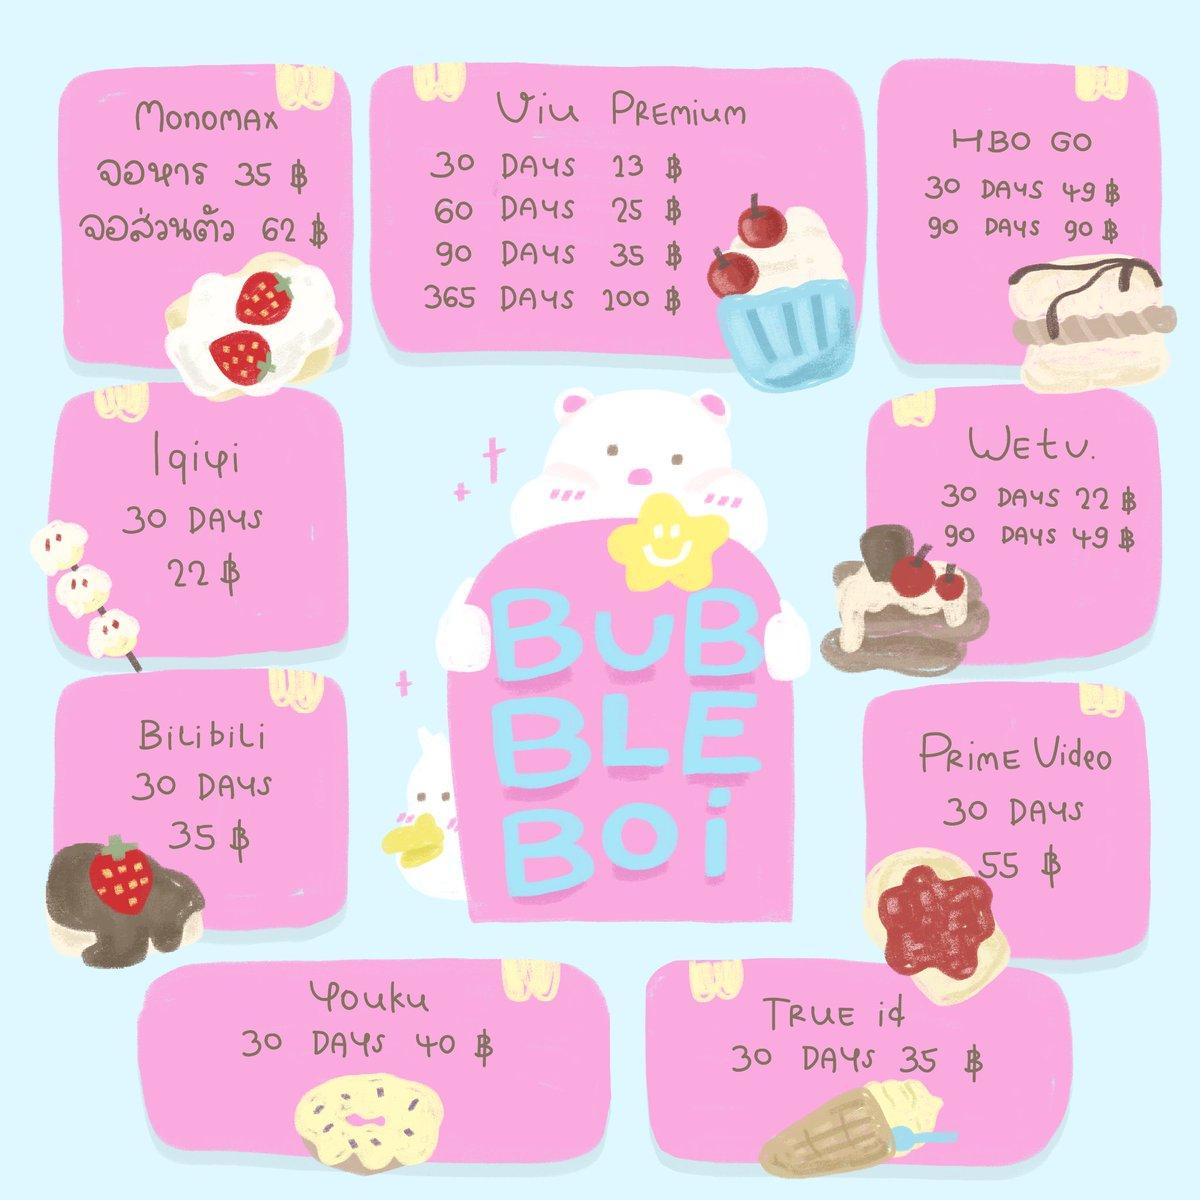 Monomax
จอหาร 35 ฿
จอส่วนตัว 62 ฿
Viu Premium
30 Days 13 ฿
60 Days 25 ฿
90 Days 35 ฿
365 Days 100 ฿
HBO GO
30 Days 49 ฿
90 Days 90 ฿
Iqiyi
30 Days
22 ฿
Wetv.
30 Days 22 ฿
90 Days 49 ฿
BUB
BLE
BOi
Bilibili
30 Days
35 ฿
Prime Video
30 Days
55 ฿
Youku
30 Days 40 ฿
True id
30 Days 35 ฿